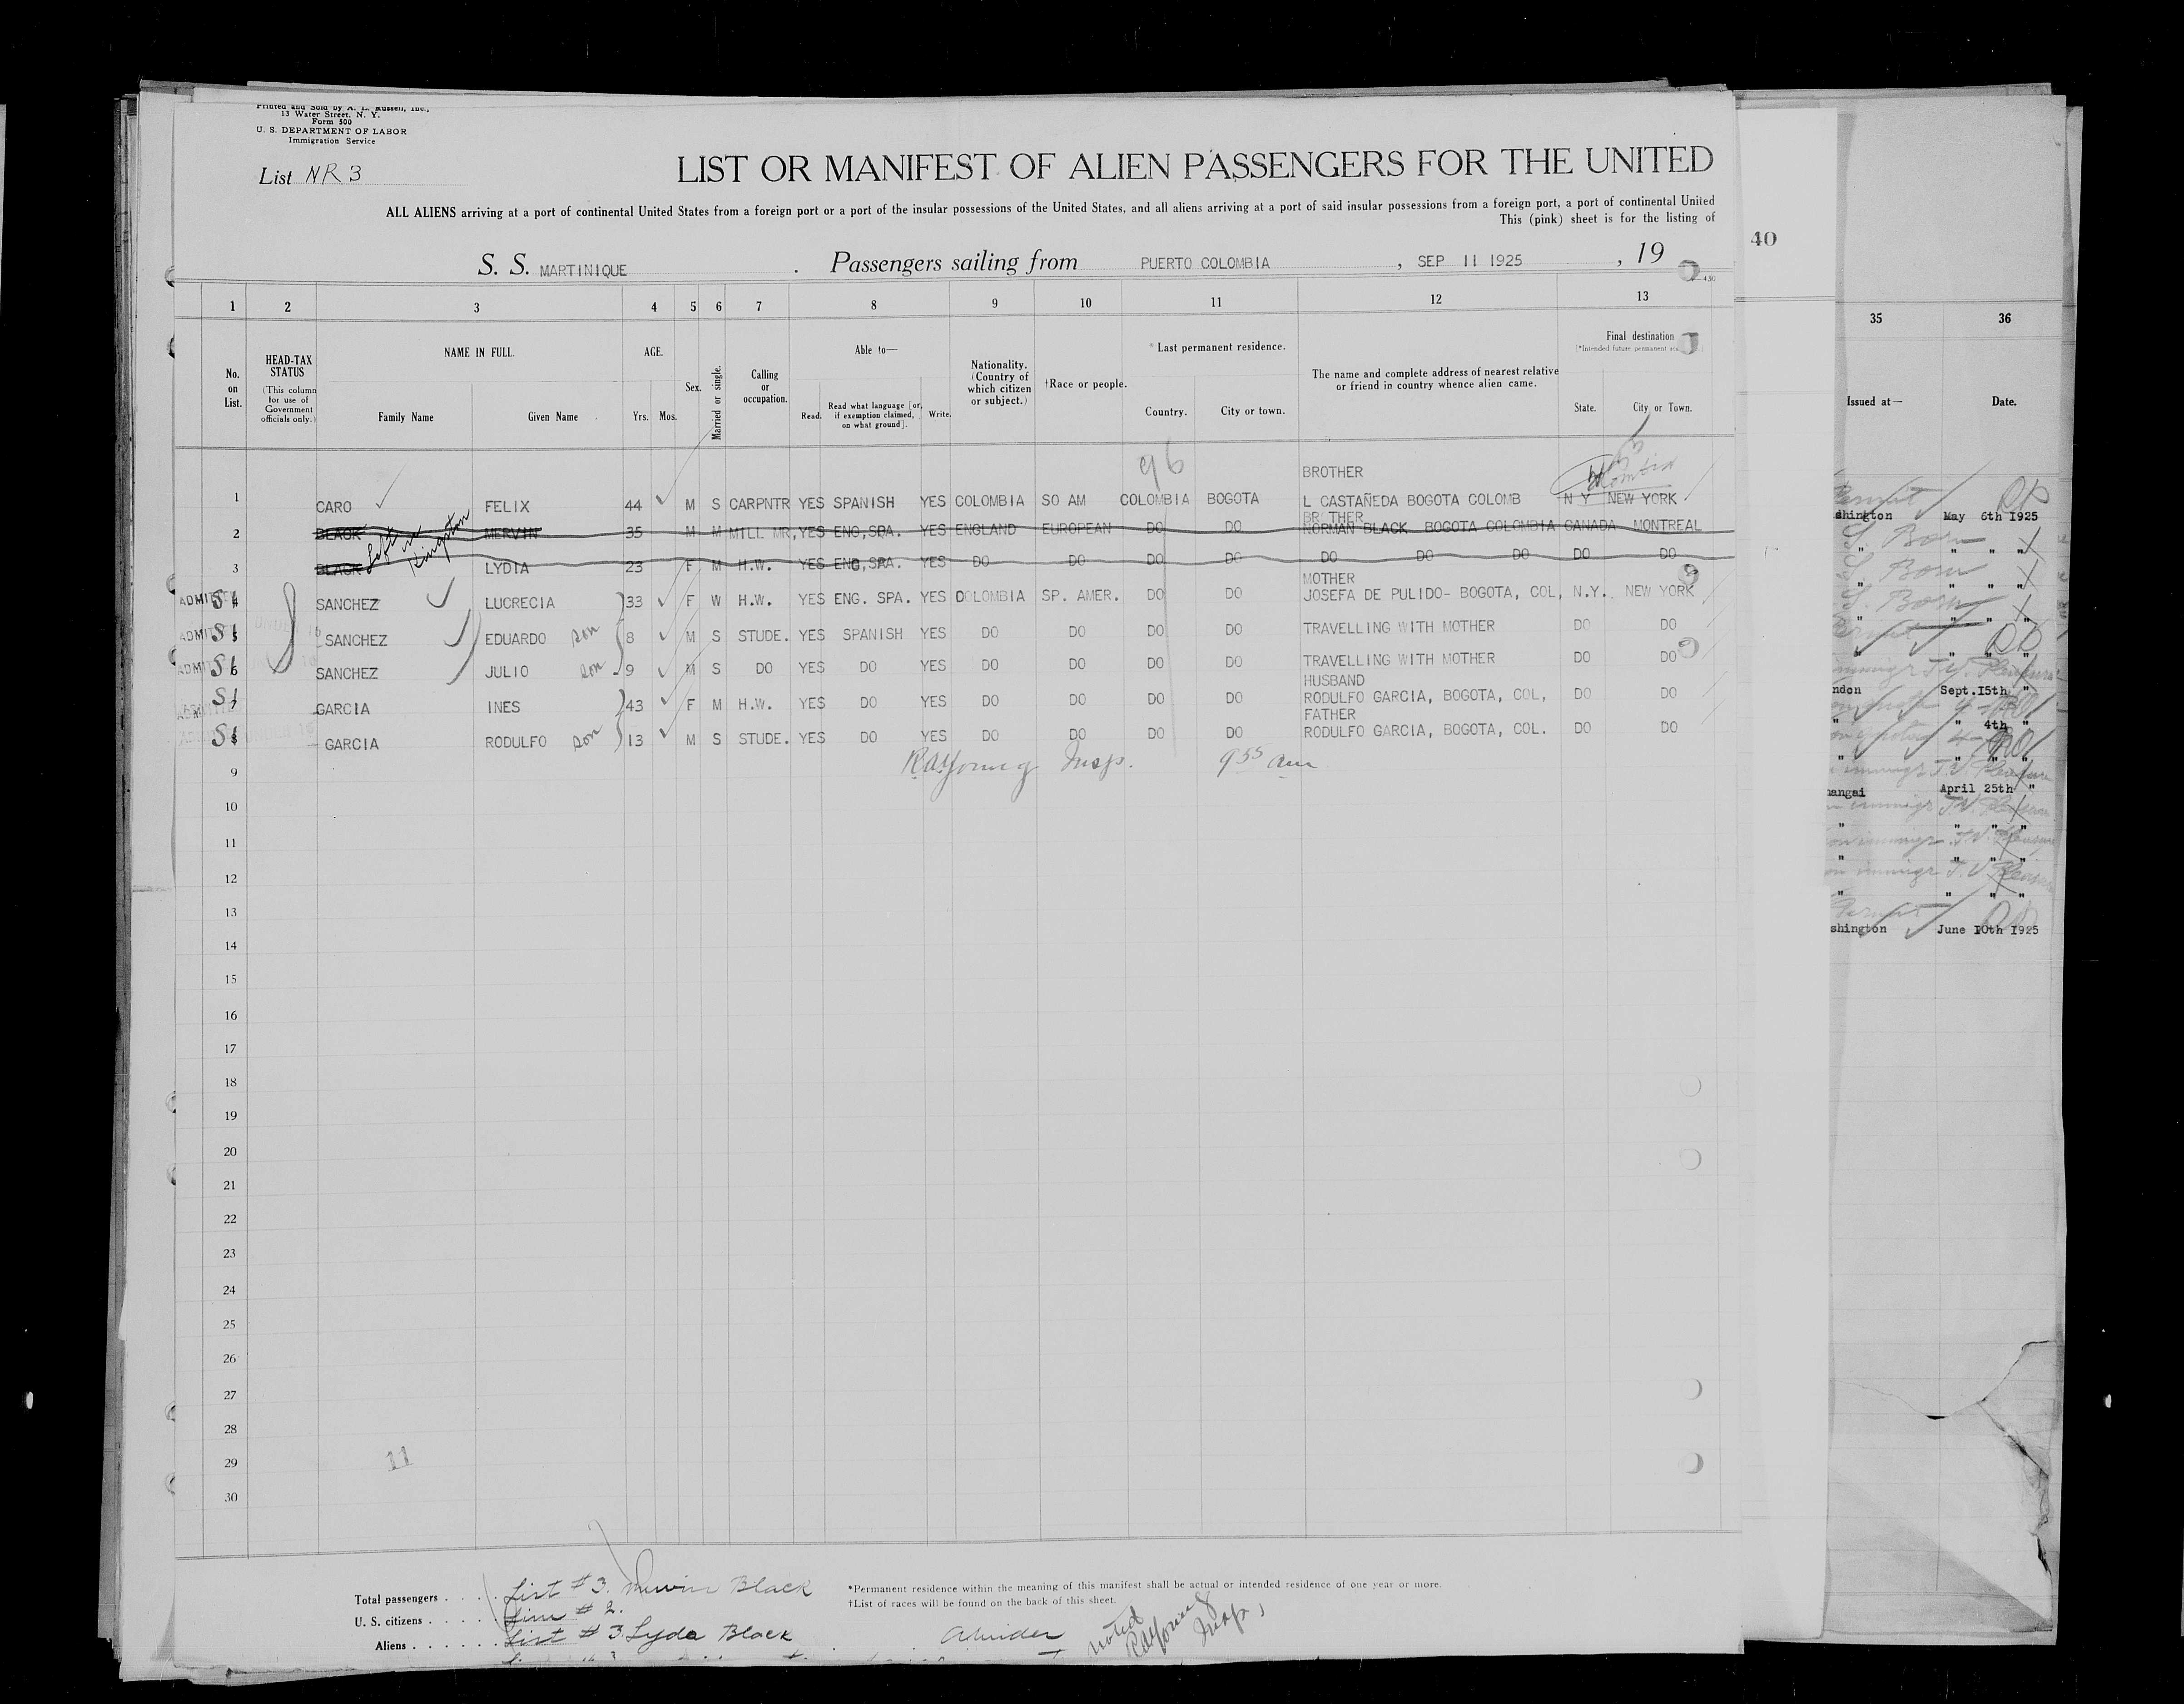 Printed and Sold by A. L. Russell, Inc.,
13 Water Street, N. Y.
Form 500
U. S. DEPARTMENT OF LABOR
Immigration Service
List NR 3
LIST OR MANIFEST OF ALIEN PASSENGERS FOR THE UNITED
ALL ALIENS arriving at a port of continental United States from a foreign port or a port of the insular possessions of the United States, and all aliens arriving at a port of said insular possessions from a foreign port, a port of continental United
This (pink) sheet is for the listing of
S. S. MARTINIQUE . Passengers sailing from PUERTO COLOMBIA , SEP 11 1925 , 19
40
1 2 3 4 5 6 7 8 9 10 11 12 13
35 36
No. on List.
HEAD-TAX STATUS
(This column for use of Government officials only.)
NAME IN FULL.
Family Name Given Name
AGE.
Yrs. Mos.
Sex.
Married or single.
Calling or occupation.
Able to—
Read. Read what language [or, if exemption claimed, on what ground]. Write.
Nationality. (Country of which citizen or subject.)
†Race or people.
*Last permanent residence.
Country. City or town.
The name and complete address of nearest relative or friend in country whence alien came.
Final destination
State. City or Town.
Issued at— Date.
96
BROTHER
1 CARO FELIX 44 M S CARPNTR YES SPANISH YES COLOMBIA SO AM COLOMBIA BOGOTA L CASTAÑEDA BOGOTA COLOMB N Y NEW YORK
BROTHER
2 BLACK MERVIN 35 M M MILL MR, YES ENG,SPA. YES ENGLAND EUROPEAN DO DO NORMAN BLACK BOGOTA COLOMBIA CANADA MONTREAL
Left in Kingston
3 BLACK LYDIA 23 F M H.W. YES ENG,SPA. YES DO DO DO DO DO DO DO DO DO
MOTHER
ADMITTED 4 SANCHEZ LUCRECIA 33 F W H.W. YES ENG. SPA. YES COLOMBIA SP. AMER. DO DO JOSEFA DE PULIDO- BOGOTA, COL, N.Y. NEW YORK
5 SANCHEZ EDUARDO son 8 M S STUDE. YES SPANISH YES DO DO DO DO TRAVELLING WITH MOTHER DO DO
6 SANCHEZ JULIO son 9 M S DO YES DO YES DO DO DO DO TRAVELLING WITH MOTHER DO DO
HUSBAND
7 GARCIA INES 43 F M H.W. YES DO YES DO DO DO DO RODULFO GARCIA, BOGOTA, COL, DO DO
FATHER
8 GARCIA RODULFO son 13 M S STUDE. YES DO YES DO DO DO DO RODULFO GARCIA, BOGOTA, COL. DO DO
RaYoung Insp. 9 55 am
9
10
11
12
13
14
15
16
17
18
19
20
21
22
23
24
25
26
27
28
29
30
11
shington May 6th 1925
ndon Sept.15th "
" " 4th "
angai April 25th "
shington June 10th 1925
Total passengers . . . . List # 3. Mervin Black
U. S. citizens . . . . . Line # 2.
Aliens . . . . . . List # 3 Lyda Black
*Permanent residence within the meaning of this manifest shall be actual or intended residence of one year or more.
†List of races will be found on the back of this sheet.
noted
RaYoung
Insp.